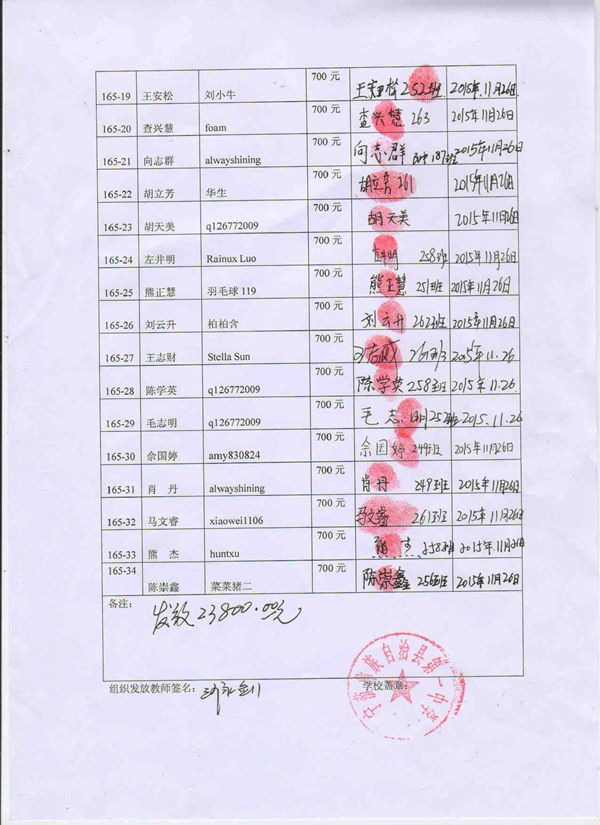 165-19 王安松 刘小牛 700 元 王安松 252班 2015年.11月26日
165-20 查兴慧 foam 700 元 查兴慧 263 2015年11月26日
165-21 向志群 alwayshining 700 元 向志群 187班 2015年11月26日
165-22 胡立芳 华生 700 元 胡立芳 261 2015年11月26日
165-23 胡天美 q126772009 700 元 胡天美 2015年11月26日
165-24 左井明 Rainux Luo 700 元 井明 258班 2015年11月26日
165-25 熊正慧 羽毛球 119 700 元 熊正慧 251班 2015年11月26日
165-26 刘云升 柏柏含 700 元 刘云升 262班 2015年11月26日
165-27 王志财 Stella Sun 700 元 2015年.11.26
165-28 陈学英 q126772009 700 元 陈学英 258班 2015年.11.26
165-29 毛志明 q126772009 700 元 毛志明 252班 2015.11.26
165-30 佘国婷 amy830824 700 元 佘国婷 249班 2015年11月26日
165-31 肖 丹 alwayshining 700 元 肖丹 249班 2015年11月26日
165-32 马文睿 xiaowei1106 700 元 马文睿 261班 2015年11月26日
165-33 熊 杰 huntxu 700 元 熊杰 258班 2015年11月26日
165-34 陈崇鑫 菜菜猪二 700 元 陈崇鑫 256班 2015年11月26日
备注： 发放23800.00元
组织发放教师签名： 学校盖章：
族自治县第一中学